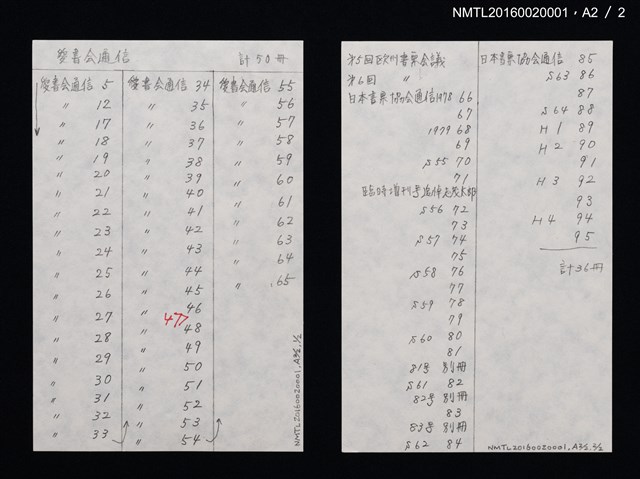 NMTL20160020001，A2 / 2
愛書会通信 計50冊
愛書会通信 5
〃 12
〃 17
〃 18
〃 19
〃 20
〃 21
〃 22
〃 23
〃 24
〃 25
〃 26
〃 27
〃 28
〃 29
〃 30
〃 31
〃 32
〃 33
愛書会通信 34
〃 35
〃 36
〃 37
〃 38
〃 39
〃 40
〃 41
〃 42
〃 43
〃 44
〃 45
〃 46
47
〃 48
〃 49
〃 50
〃 51
〃 52
〃 53
〃 54
愛書会通信 55
〃 56
〃 57
〃 58
〃 59
〃 60
〃 61
〃 62
〃 63
〃 64
〃 65
NMTL20160020001, A2/2, 1/2
第5回欧州書票会議
第6回 〃
日本書票協会通信1978 66
67
1979 68
69
S55 70
71
臨時増刊号
S56 72
73
S57 74
75
S58 76
77
S59 78
79
S60 80
81
81号 別冊
S61 82
82号 別冊
83
83号 別冊
S62 84
日本書票協会通信 85
S63 86
87
S64 88
H1 89
H2 90
91
H3 92
93
H4 94
95
計36冊
NMTL20160020001, A2/2, 2/2